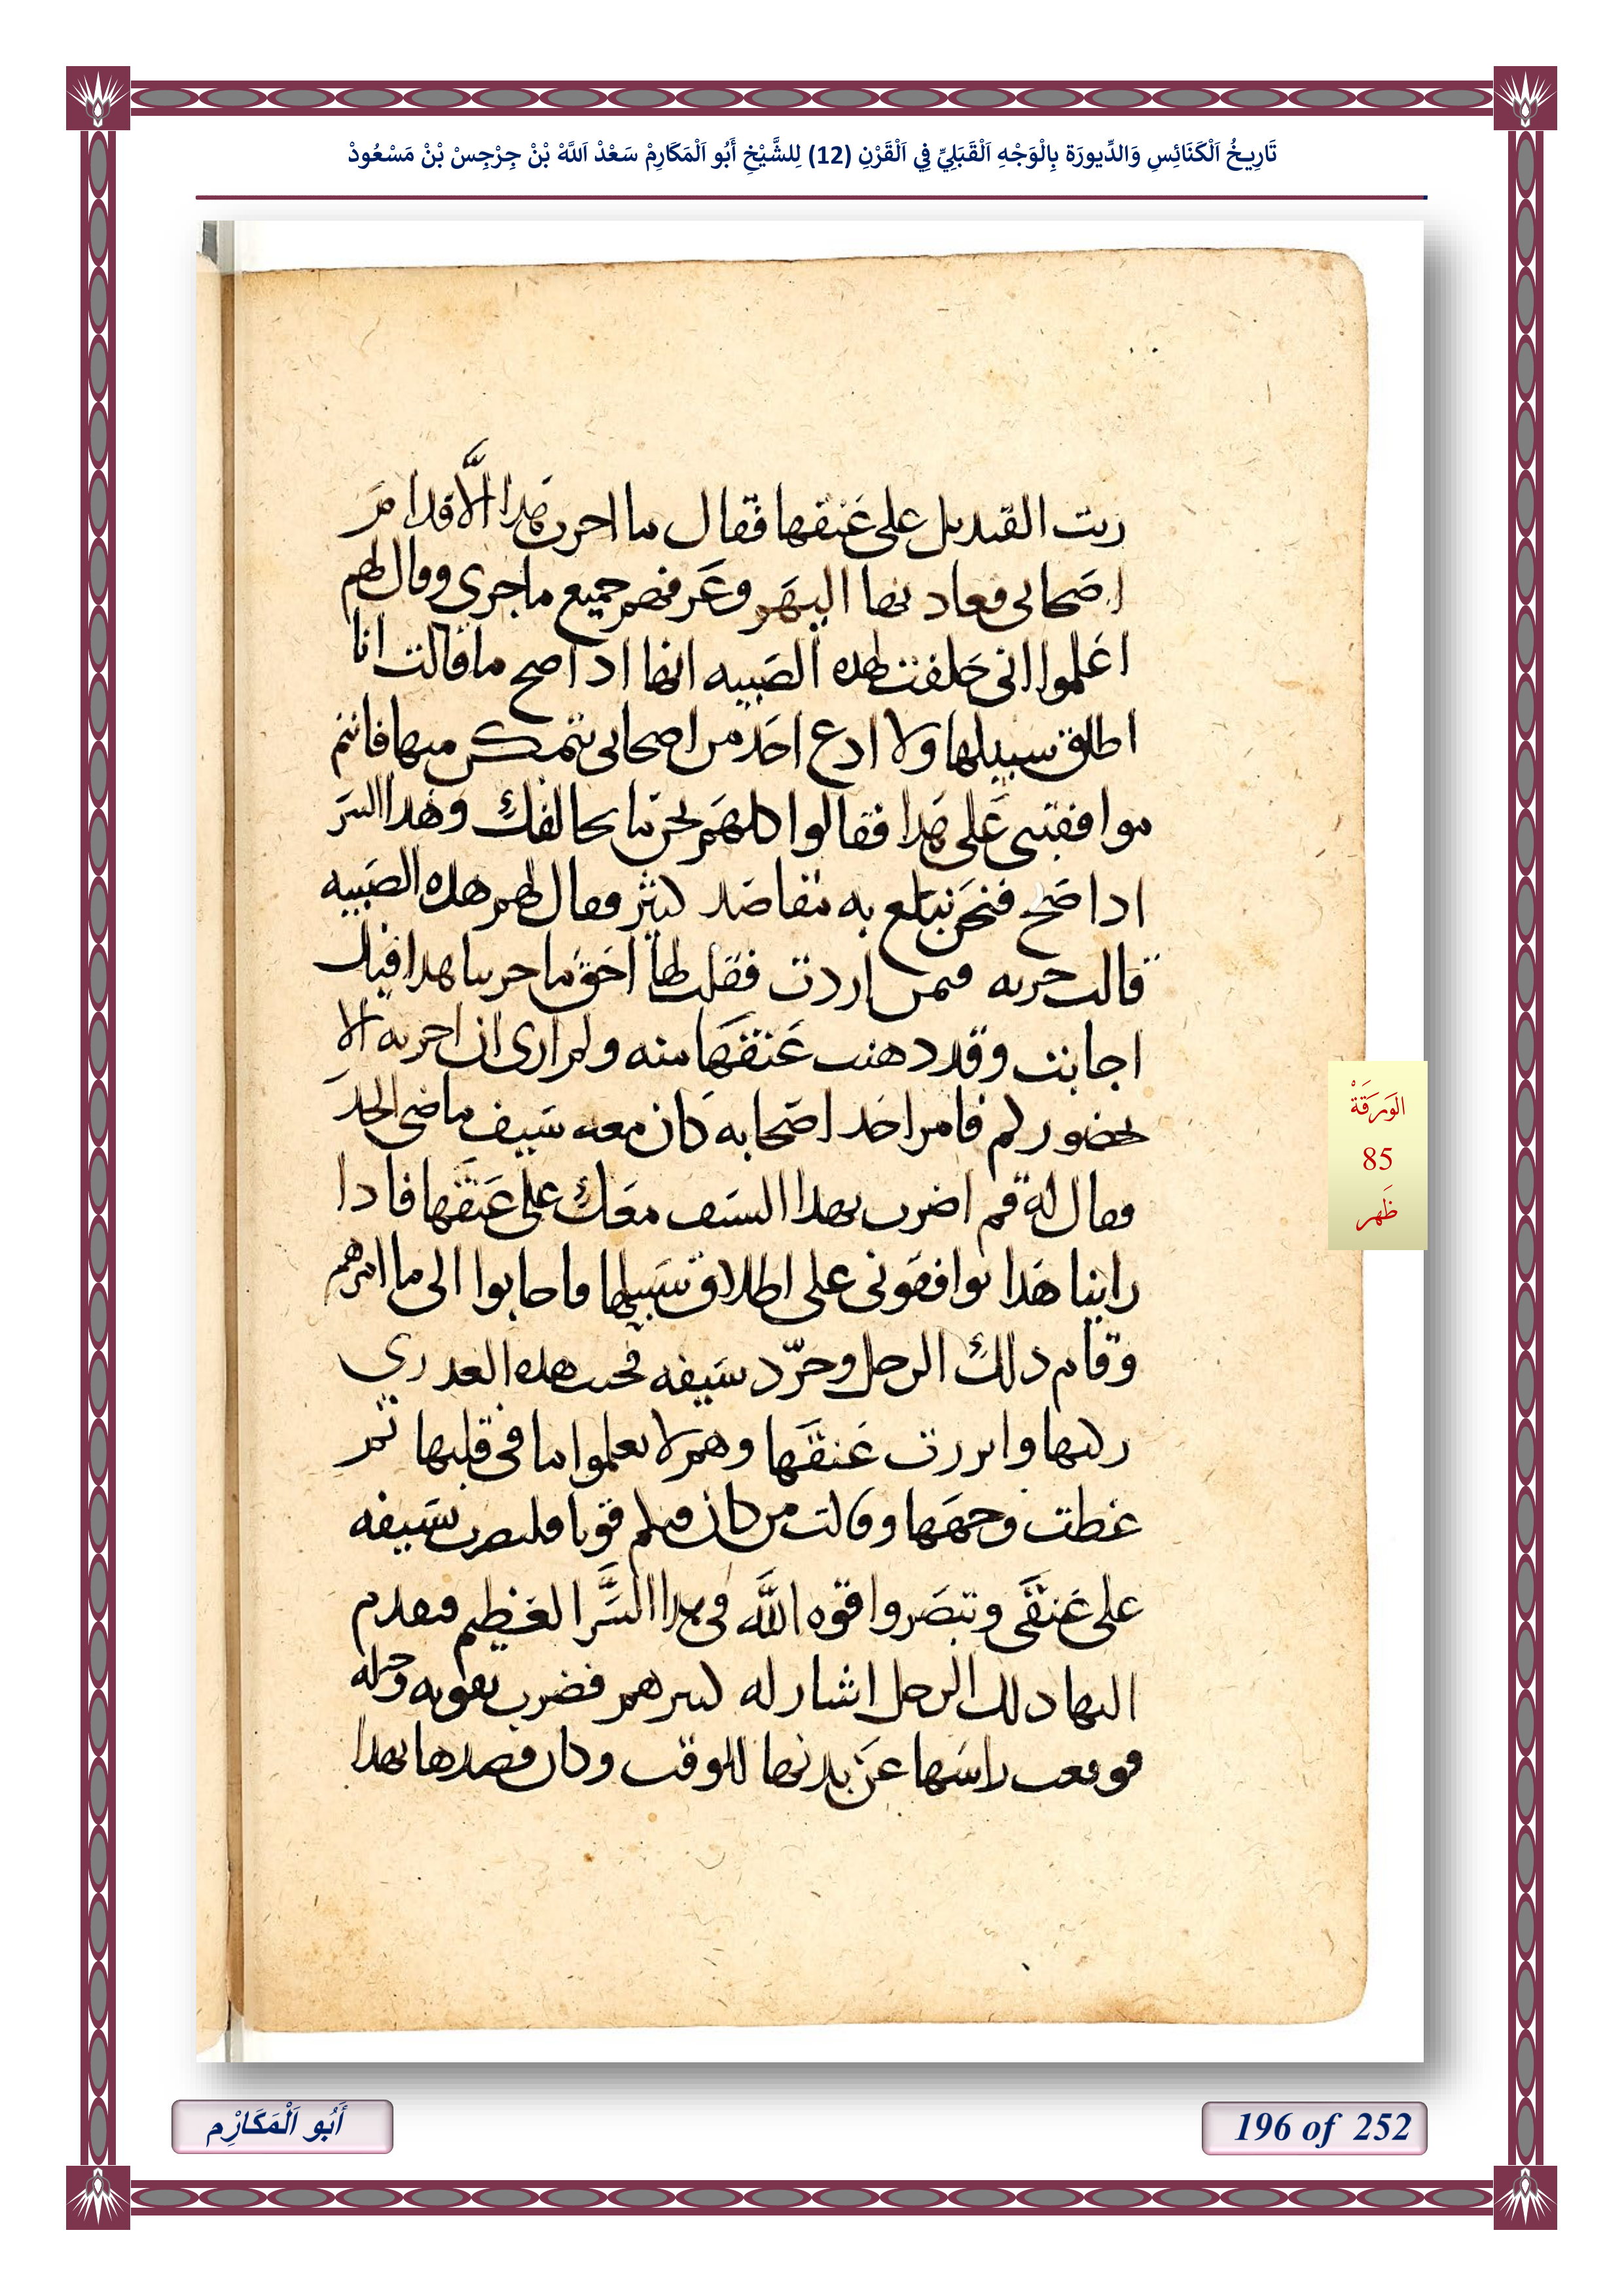 تَارِيخُ اَلْكَنَائِسِ وَالدِّيورَة بِالْوَجْهِ اَلْقَبَلِيِّ فِي اَلْقَرْنِ (12) لِلشَّيْخِ أَبُو اَلْمَكَارِمْ سَعْدْ اَللَّهْ بْنْ جِرْجِسْ بْنْ مَسْعُودْ
ريت القنديل على عنقها فقال ما اجرب هدا الَّا قدام
اصحابى فعاد بها اليهم وعرفهم جميع ما جرى وقال لهم
اعلموا انى حلفت لهده الصبيه انها ادا صح ما قالت انا
اطلق سبيلها ولا ادع احد من اصحابى يتمكن منها فانتم
موافقينى على هدا فقالوا كلهم نحن ما نخالفك وهدا السر
ادا صح فنحن نبلغ به مقاصد كثير فقال لهم هده الصبيه
قالت جربه فيمن اردت فقلت لها احق ما جربنا هدا فيك
اجابت وقد دهنت عنقها منه ولم ارى ان اجربه الا
بحضوركم فامر احد اصحابه كان معه سيف ماضى الحد
وقال له قم اضرب بهدا السيف معك على عنقها فادا
راينا هدا توافقونى على اطلاق سبيلها فاجابوا الى ما امرهم
وقام دلك الرجل وجرّد سيفه فجت هده العدرى
ركبها وابرزت عنقها وهم لا يعلموا ما فى قلبها ثم
غطت وجهها وقالت من كان فيكم قويا فليضرب بسيفه
على عنقى وتبصروا قوه اللَّه فى هدا السر العظيم فتقدم
اليها دلك الرجل اشار له كبيرهم فضرب بقوته وحيله
فوقعت راسها عن بدنها للوقت وكان قصدها بهدا
الوَرَقَةْ
85
ظَهر
أَبُو اَلْمَكَارِْم
196 of 252